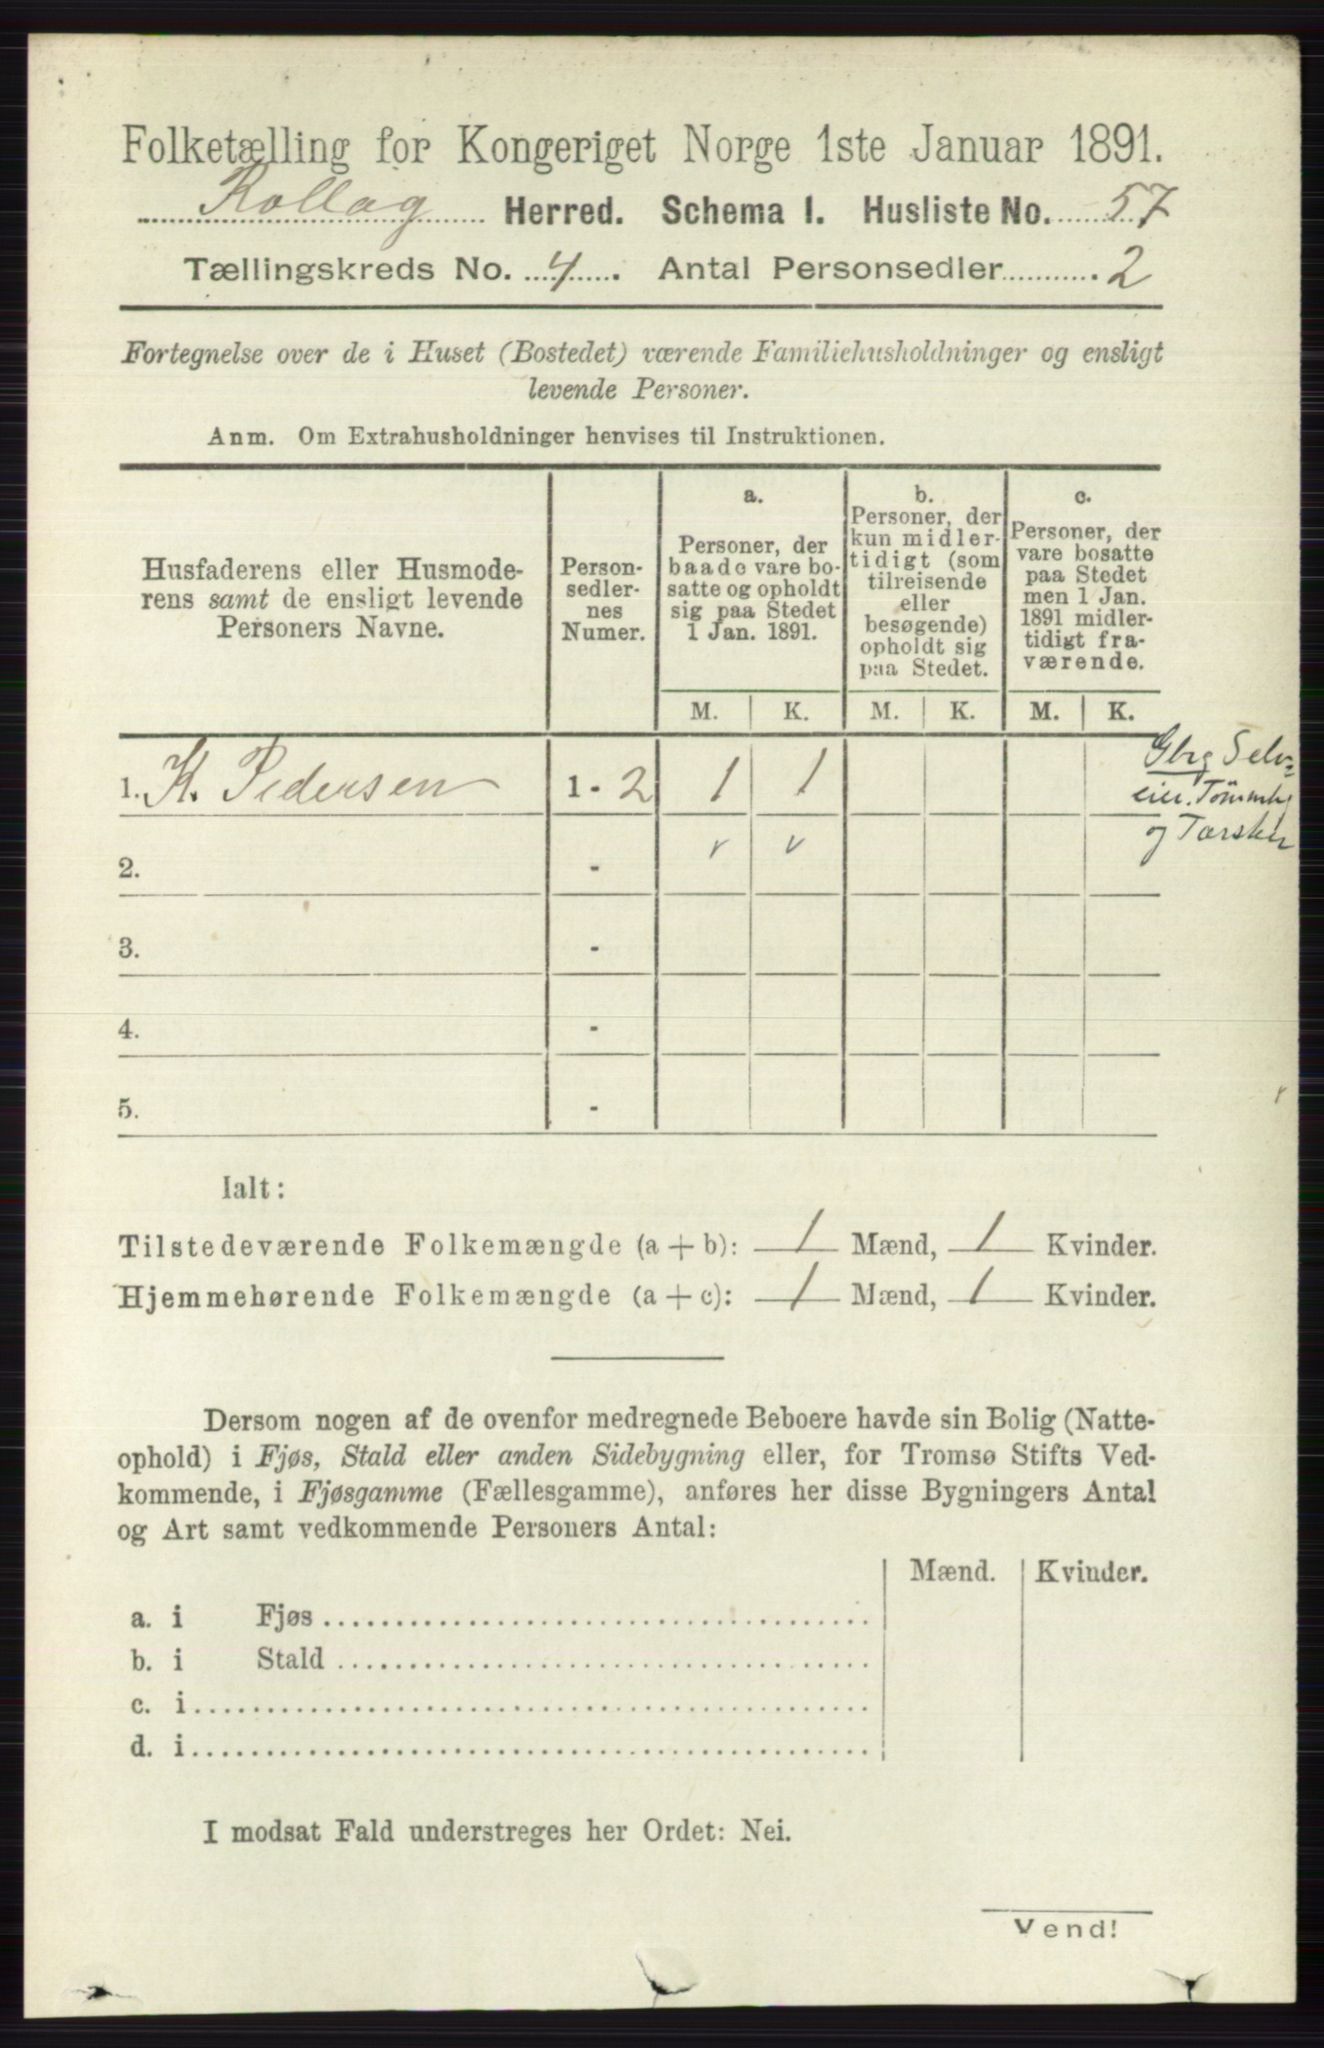 Folketælling for Kongeriget Norge 1ste Januar 1891.
Rollag Herred. Schema I. Husliste No. 57
Tællingskreds No. 4. Antal Personsedler 2
Fortegnelse over de i Huset (Bostedet) værende Familiehusholdninger og ensligt
levende Personer.
Anm. Om Extrahusholdninger henvises til Instruktionen.
Husfaderens eller Husmode-
rens samt de ensligt levende
Personers Navne.
Person-
sedler-
nes
Numer.
a.
Personer, der
baade vare bo-
satte og opholdt
sig paa Stedet
1 Jan. 1891.
b.
Personer, der
kun midler-
tidigt (som
tilreisende
eller
besøgende)
opholdt sig
paa Stedet.
c.
Personer, der
vare bosatte
paa Stedet
men 1 Jan.
1891 midler-
tidigt fra-
værende.
M. K. M. K. M. K.
1. K. Pedersen 1 - 2 1 1
Gbrg Selv=
eier. Tømmerh
og Tærsker
2. -
3. -
4. -
5. -
Ialt:
Tilstedeværende Folkemængde (a + b): 1 Mænd, 1 Kvinder.
Hjemmehørende Folkemængde (a + c): 1 Mænd, 1 Kvinder.
Dersom nogen af de ovenfor medregnede Beboere havde sin Bolig (Natte-
ophold) i Fjøs, Stald eller anden Sidebygning eller, for Tromsø Stifts Ved-
kommende, i Fjøsgamme (Fællesgamme), anføres her disse Bygningers Antal
og Art samt vedkommende Personers Antal:
Mænd. Kvinder.
a. i Fjøs
b. i Stald
c. i
d. i
I modsat Fald understreges her Ordet: Nei.
Vend!